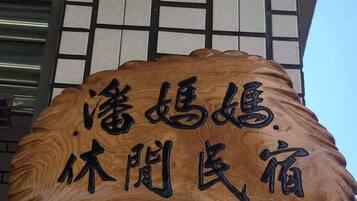 潘媽媽
休閒民宿